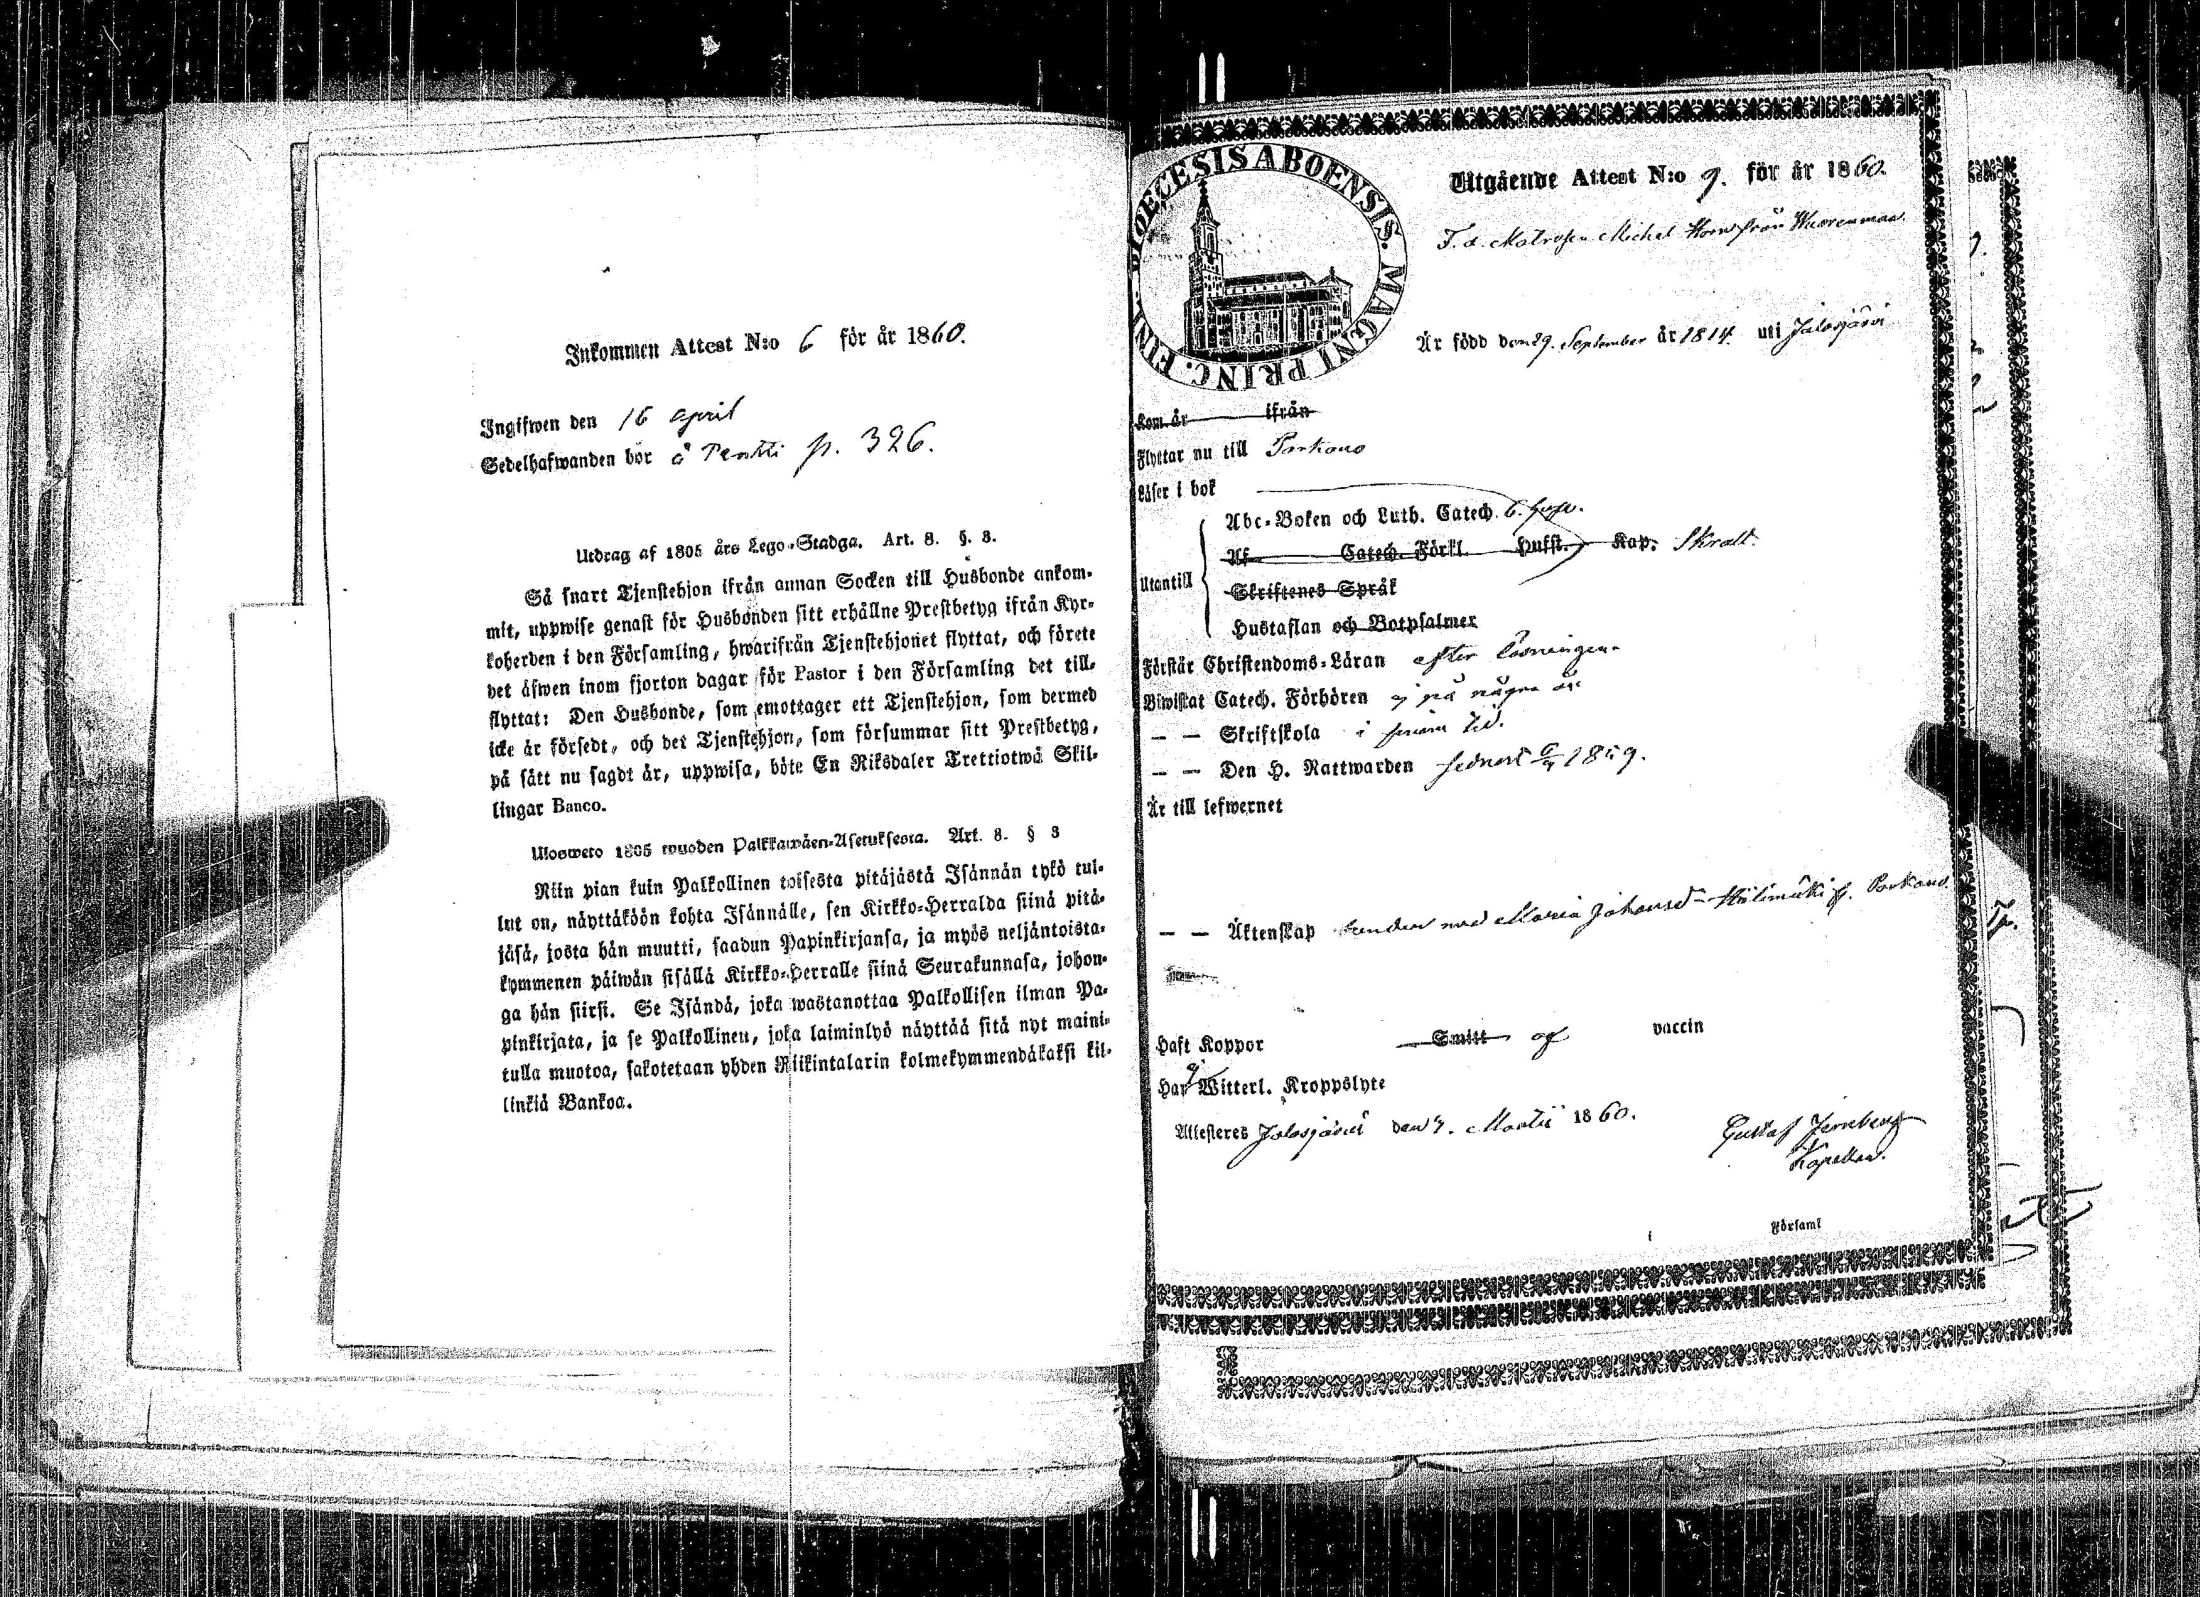 Inkommen Attest N:o 6 för år 1860.
Ingifwen den 16 april
Sedelhafwanden bor å Pentti p. 326.
Utdrag af 1805 års Lego-Stadga. Art. 8. §. 3.
Så snart Tjenstehjon ifrån annan Socken till Husbonde ankom-
mit, uppwise genast för Husbonden sitt erhållne Prestbetyg ifrån Kyr-
koherden i den Församling, hwarifrån Tjenstehjonet flyttat, och förete
det äfwen inom fjorton dagar för Pastor i den Församling det till-
flyttat: Den Husbonde, som emottager ett Tjenstehjon, som dermed
icke är försedt, och det Tjenstehjon, som försummar sitt Prestbetyg,
på sätt nu sagdt är, uppwisa, böte En Riksdaler Trettiotwå Skil-
lingar Banco.
Ulosweto 1805 wuoden Palkkawäen-Asetuksesta. Art. 8. § 3
Niin pian kuin Palkollinen toisesta pitäjästä Isännän tykö tul-
lut on, näyttäköön kohta Isännälle, sen Kirkko-Herralda siinä pitä-
jäsä, josta hän muutti, saadun Papinkirjansa, ja myös neljäntoista-
kymmenen päiwän sisällä Kirkko-Herralle siinä Seurakunnasa, johon-
ga hän siirsi. Se Isändä, joka wastanottaa Palkollisen ilman Pa-
pinkirjata, ja se Palkollinen, joka laiminlyö näyttää sitä nyt maini-
tulla muotoa, sakotetaan yhden Riikintalarin kolmekymmendäkaksi kil-
linkiä Bankoa.
DIOECESIS ABOENSIS. MAGNI PRINC. FINL.
Utgående Attest N:o 9. för år 1860.
F. d. Matrosen Michel Horn från Wuorenmaa.
Är född den 29. September år 1814. uti Jalasjärvi
Kom år ifrån
Flyttar nu till Parkano
Läser i bok
Abc-Boken och Luth. Catech.
Af Catech. Förkl. Hufst. Kap. Skralt.
Utantill
Skriftenes Språk
Hustaflan och Botpsalmer
Förstår Christendoms-Läran efter läsningen.
Biwistat Catech. Förhören ej på några år
— — Skriftskola i sinom tid.
— — Den H. Nattwarden sednast 1859.
Är till lefwernet
— — Äktenskap med Maria Johansd. Parkano
Haft Koppor Smitt af vaccin
Har ej Witterl. Kroppslyte
Attesteres Jalasjärvi den 7. Martii 1860.
Gustaf Jernberg
Kapellan.
Församl